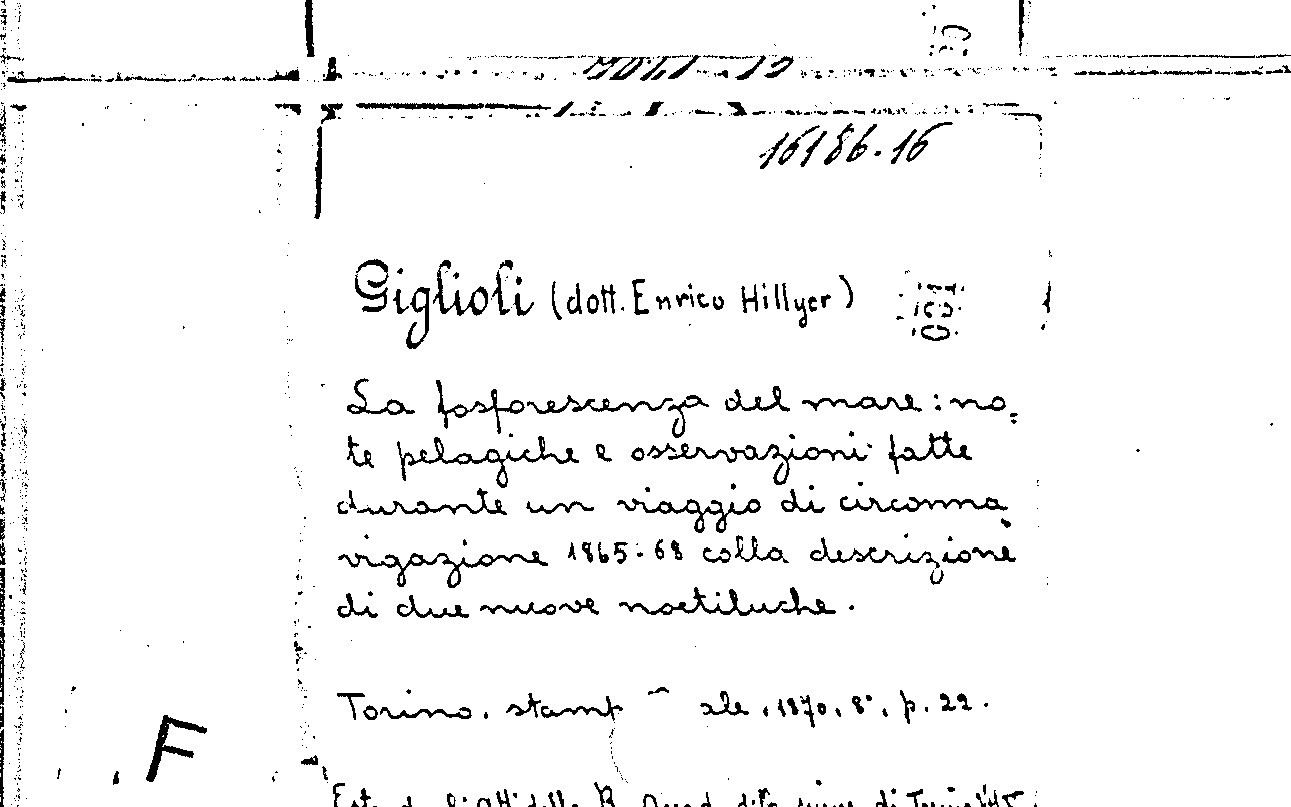 16186.16
Giglioli (dott. Enrico Hillyer)
La fosforescenza del mare: no=
te pelagiche e osservazioni fatte
durante un viaggio di circonna
vigazione 1865-68 colla descrizione
di due nuove noctiluche.
Torino. stamp ale, 1870, 8°, p. 22.
F